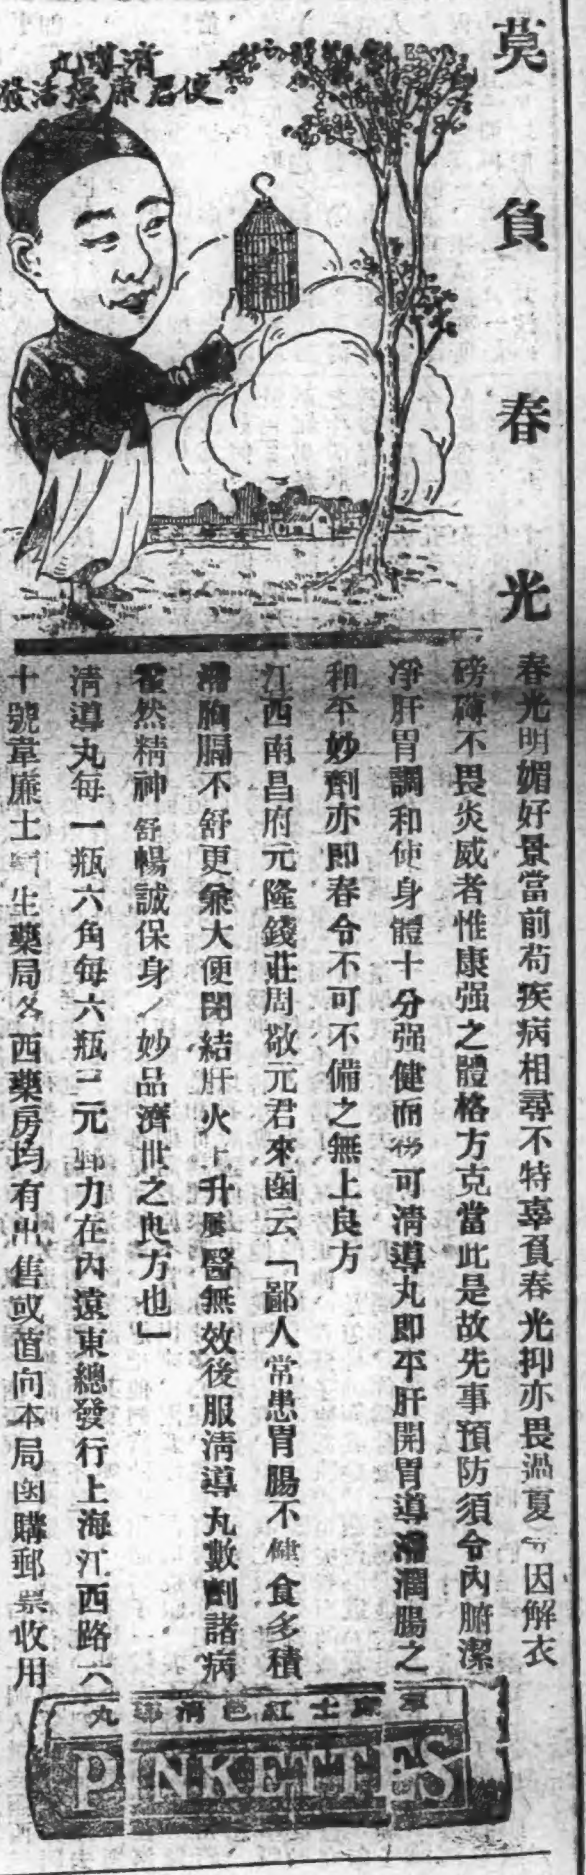 莫負春光
清導丸
使君康強活潑
春光明媚好景當前苟疾病相尋不特辜負春光抑亦畏過夏令因解衣
磅礴不畏炎威者惟康强之體格方克當此是故先事預防須令內腑潔
净肝胃調和使身體十分强健而後可清導丸即平肝開胃導滯潤腸之
和平妙劑亦即春令不可不備之無上良方
江西南昌府元隆錢莊周敬元君來函云「鄙人常患胃腸不健食多積
滯胸膈不舒更兼大便閉結肝火上升屢醫無效後服清導丸數劑諸病
霍然精神舒暢誠保身之妙品濟世之良方也」
清導丸每一瓶六角每六瓶三元郵力在內遠東總發行上海江西路六
十號韋廉士醫生藥局各西藥房均有出售或直向本局函購郵票收用
韋廉士紅色清導丸
PINKETTES